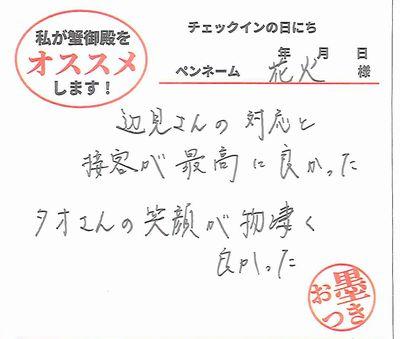 私が蟹御殿を
オススメ
します！
チェックインの日にち
年 月 日
ペンネーム 花火 様
辺見さんの対応と
接客が最高に良かった
タオさんの笑顔が物凄く
良かった
お墨つき